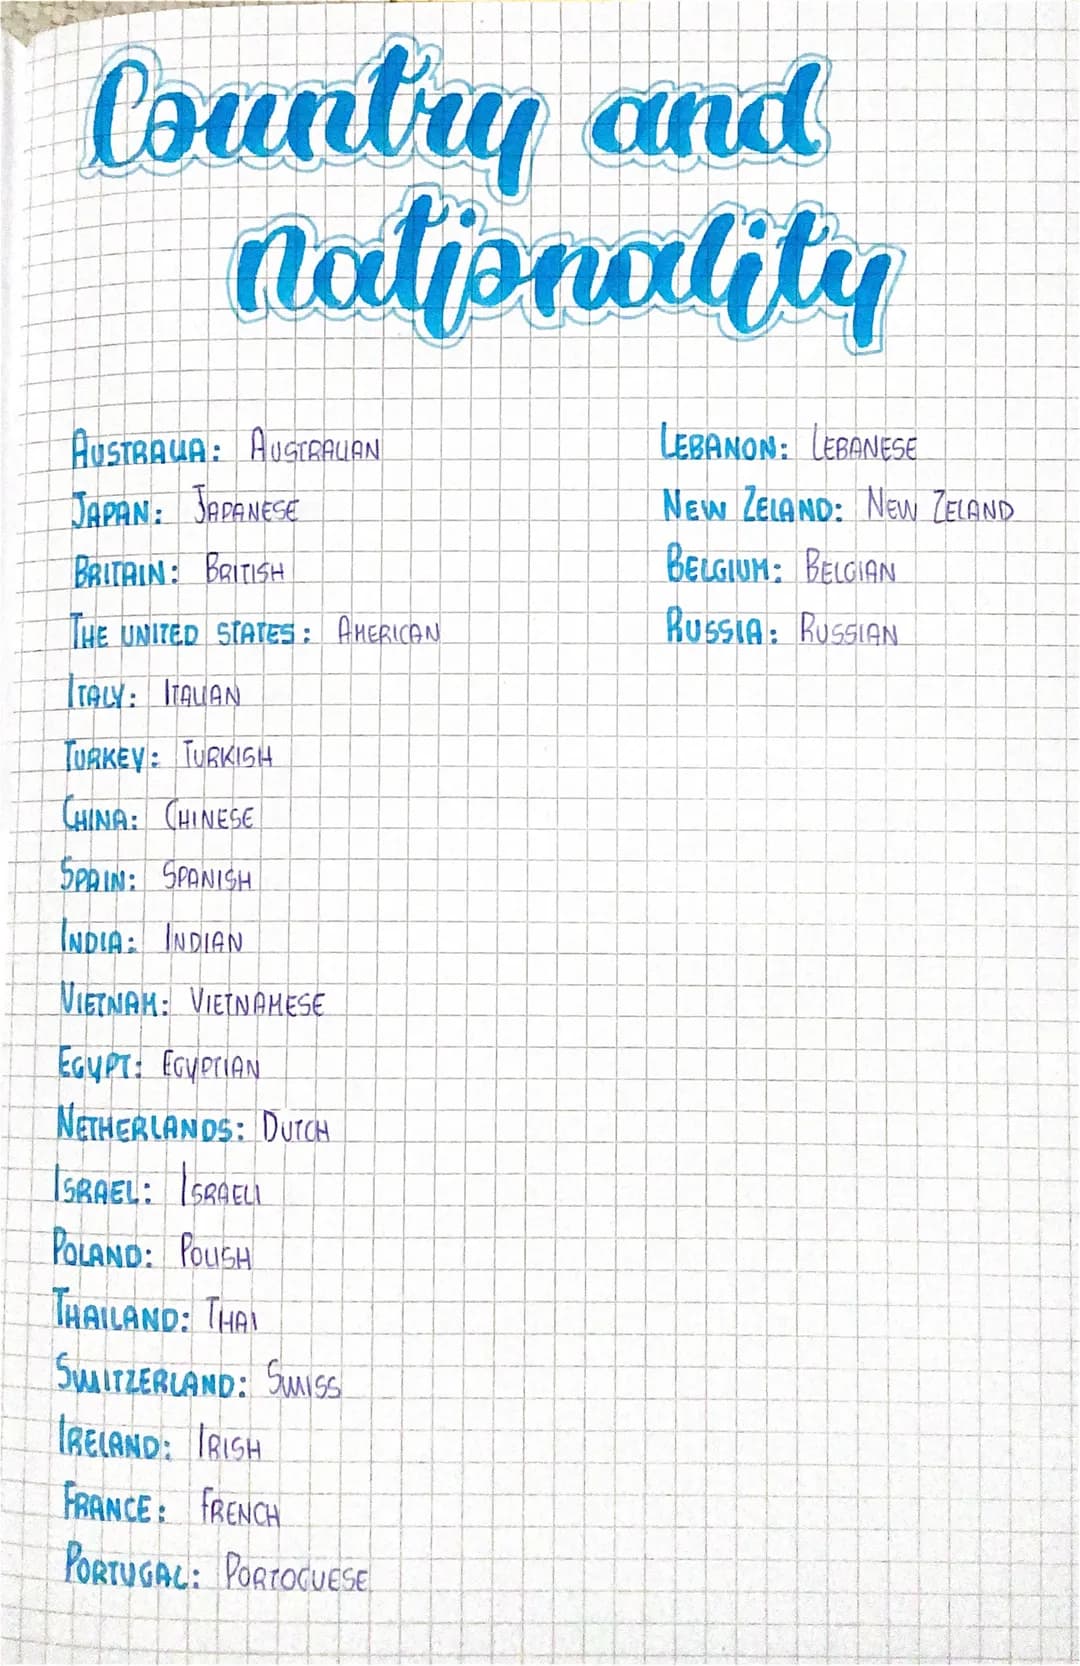 Country and
nationality
AUSTRALIA: AUSTRALIAN
JAPAN: JAPANESE
BRITAIN: BRITISH
THE UNITED STATES: AMERICAN
ITALY: ITALIAN
TURKEY: TURKISH
CHINA: CHINESE
SPAIN: SPANISH
INDIA: INDIAN
VIETNAM: VIETNAMESE
EGYPT: EGYPTIAN
NETHERLANDS: DUTCH
ISRAEL: ISRAELI
POLAND: POLISH
THAILAND: THAI
SWITZERLAND: SWISS
IRELAND: IRISH
FRANCE: FRENCH
PORTUGAL: PORTOGUESE
LEBANON: LEBANESE
NEW ZELAND: NEW ZELAND
BELGIUM: BELGIAN
RUSSIA: RUSSIAN